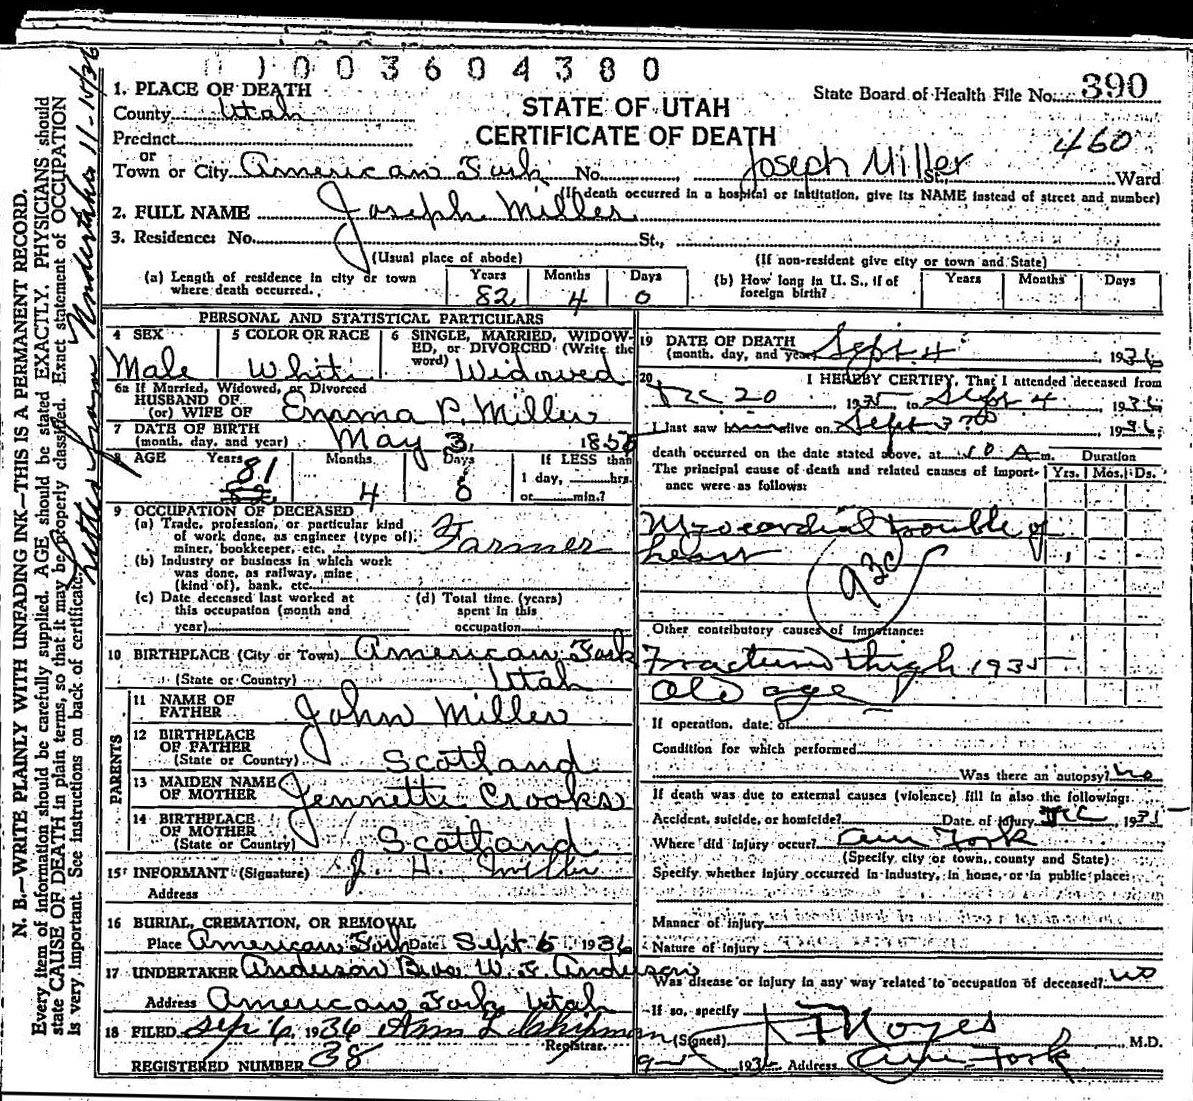 0 1 0 0 3 6 0 4 3 8 0
State Board of Health File No. 390
460
1. PLACE OF DEATH
County Utah
STATE OF UTAH
CERTIFICATE OF DEATH
Precinct
or
Town or City American Fork No. Joseph Miller St., Ward
(If death occurred in a hospital or institution, give its NAME instead of street and number)
2. FULL NAME Joseph Miller
3. Residence: No. St.,
(Usual place of abode) (If non-resident give city or town and State)
(a) Length of residence in city or town where death occurred. Years 82 Months 4 Days 0
(b) How long in U. S., if of foreign birth? Years Months Days
PERSONAL AND STATISTICAL PARTICULARS
4 SEX Male
5 COLOR OR RACE White
6 SINGLE, MARRIED, WIDOWED, or DIVORCED (Write the word) Widowed
6a If Married, Widowed, or Divorced
HUSBAND OF
(or) WIFE OF Emma P. Miller
7 DATE OF BIRTH
(month, day, and year) May 3, 185
8 AGE Years 81 82 Months 4 Days 0 If LESS than 1 day, hrs. or min.?
9 OCCUPATION OF DECEASED
(a) Trade, profession, or particular kind of work done, as engineer (type of), miner, bookkeeper, etc. Farmer
(b) Industry or business in which work was done, as railway, mine (kind of), bank, etc.
(c) Date deceased last worked at this occupation (month and year)
(d) Total time (years) spent in this occupation
10 BIRTHPLACE (City or Town) American Fork
(State or Country) Utah
PARENTS
11 NAME OF FATHER John Miller
12 BIRTHPLACE OF FATHER
(State or Country) Scotland
13 MAIDEN NAME OF MOTHER Jennette Crooks
14 BIRTHPLACE OF MOTHER
(State or Country) Scotland
15 INFORMANT (Signature) J. H. Miller
Address
16 BURIAL, CREMATION, OR REMOVAL
Place American Fork Date Sept 6 1936
17 UNDERTAKER Anderson Bros W. J. Anderson
Address American Fork Utah
18 FILED Sep 6, 1936 Ann L Shipman
Registrar.
REGISTERED NUMBER 38
19 DATE OF DEATH
(month, day, and year) Sept 4, 1936
20 I HEREBY CERTIFY, That I attended deceased from
Dec 20, 1935 to Sept 4 1936
I last saw him alive on Sept 3rd 1936,
death occurred on the date stated above, at 10 A m.
The principal cause of death and related causes of importance were as follows:
Duration
Yrs. Mos. Ds.
Myocordial trouble of
heart
93c
Other contributory causes of importance:
Fractured thigh 1935
Old age
If operation, date of
Condition for which performed
Was there an autopsy? No
If death was due to external causes (violence) fill in also the following:
Accident, suicide, or homicide? Date of injury Dec 1935
Where did injury occur? Am Fork
(Specify city or town, county and State)
Specify whether injury occurred in industry, in home, or in public place:
Manner of injury
Nature of injury
Was disease or injury in any way related to occupation of deceased? No
If so, specify
(Signed) Noyes M.D.
1936 Address Am Fork
N. B.—WRITE PLAINLY WITH UNFADING INK—THIS IS A PERMANENT RECORD.
Every item of information should be carefully supplied. AGE should be stated EXACTLY. PHYSICIANS should
state CAUSE OF DEATH in plain terms, so that it may be properly classified. Exact statement of OCCUPATION
is very important. See instructions on back of certificate.
Letter from Undertaker 11-14/36